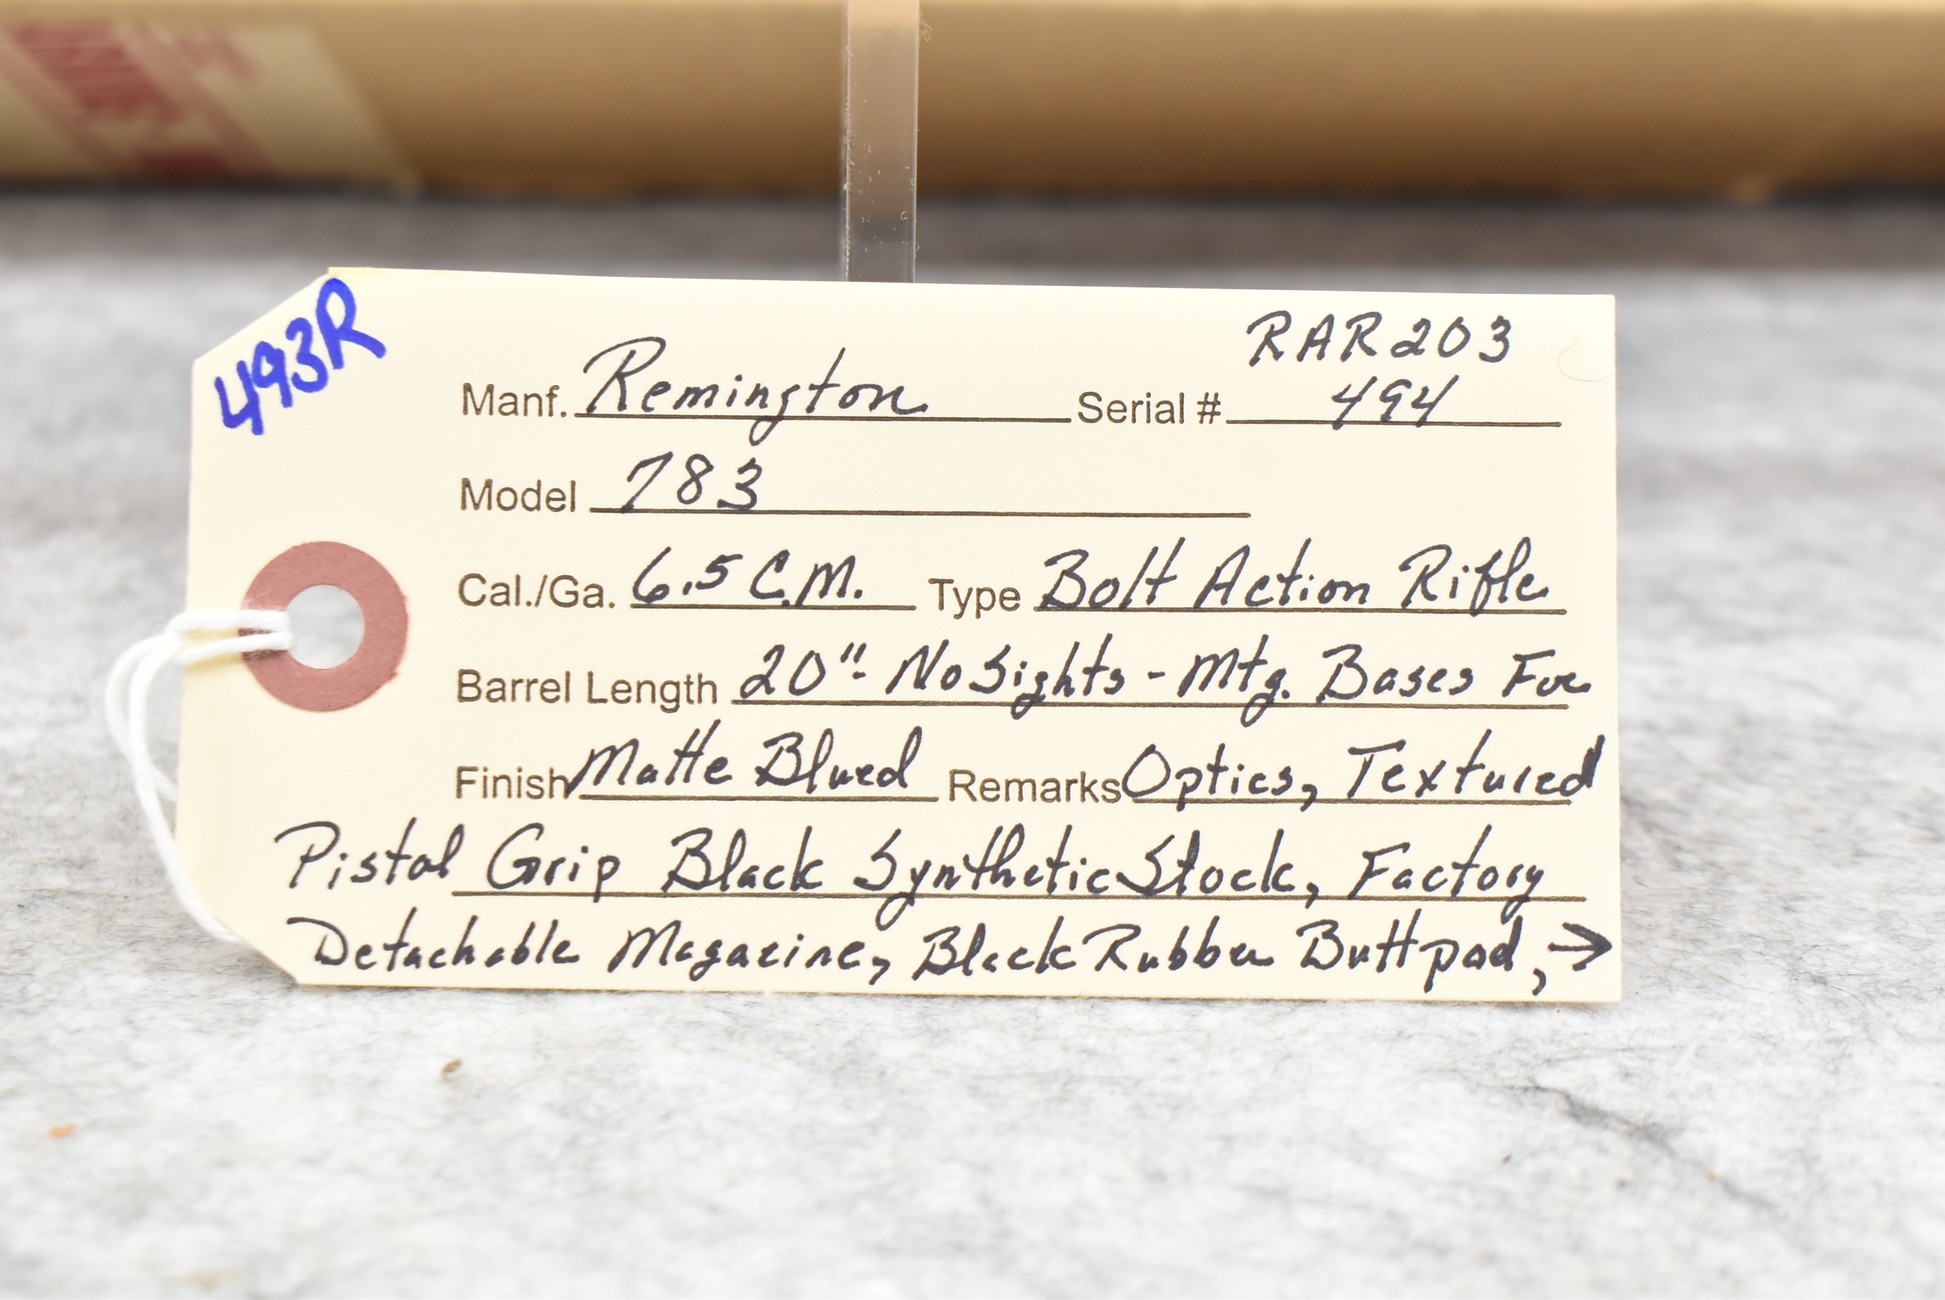 493R
RAR203
Manf. Remington Serial # 494
Model 783
Cal./Ga. 6.5 C.M. Type Bolt Action Rifle
Barrel Length 20" - No Sights - Mtg. Bases For
Finish Matte Blued Remarks Optics, Textured
Pistol Grip Black Synthetic Stock, Factory
Detachable Magazine, Black Rubber Buttpad, →